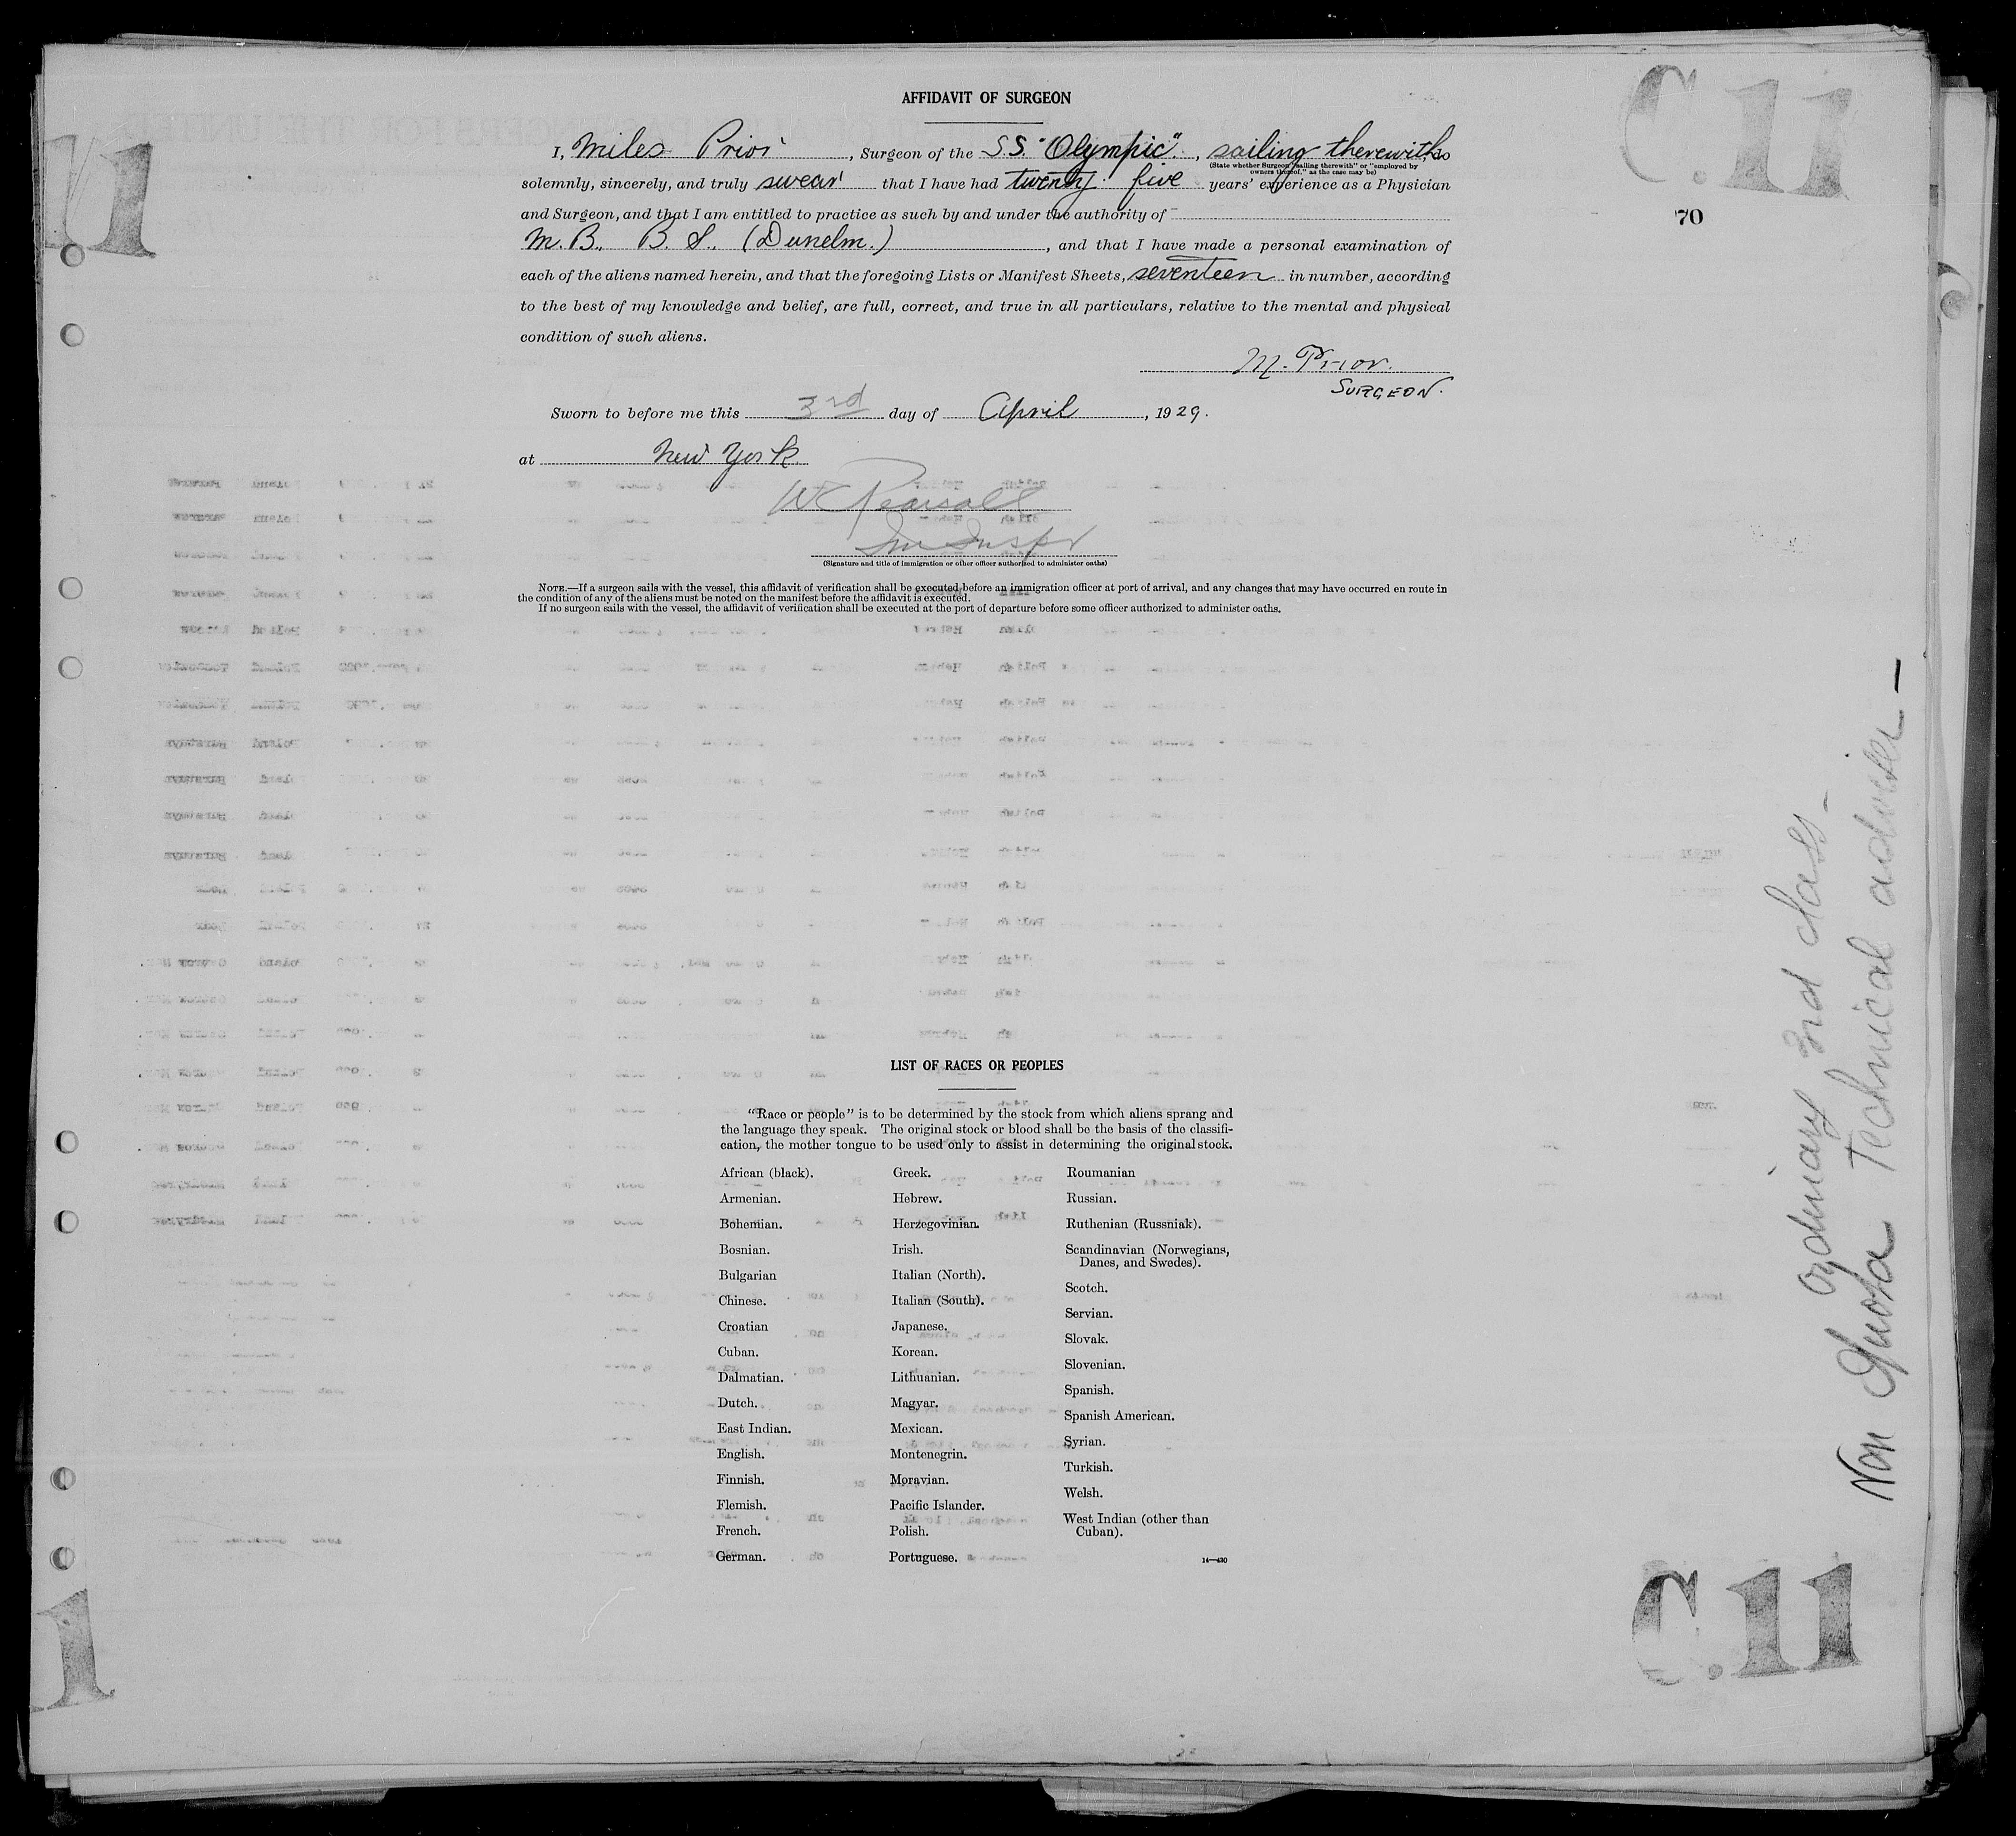 AFFIDAVIT OF SURGEON
C.11
11
I, Miles Prior, Surgeon of the S.S. "Olympic", sailing therewith, do
(State whether Surgeon "sailing therewith" or "employed by
owners thereof," as the case may be)
solemnly, sincerely, and truly swear that I have had twenty five years' experience as a Physician
and Surgeon, and that I am entitled to practice as such by and under the authority of
70
M.B., B.S., (Dunelm.), and that I have made a personal examination of
each of the aliens named herein, and that the foregoing Lists or Manifest Sheets, seventeen in number, according
to the best of my knowledge and belief, are full, correct, and true in all particulars, relative to the mental and physical
condition of such aliens.
M. Prior.
SURGEON.
Sworn to before me this 3rd day of April, 1929.
at New York
W Pearsall
Im Inspr
(Signature and title of immigration or other officer authorized to administer oaths)
NOTE.—If a surgeon sails with the vessel, this affidavit of verification shall be executed before an immigration officer at port of arrival, and any changes that may have occurred en route in
the condition of any of the aliens must be noted on the manifest before the affidavit is executed.
If no surgeon sails with the vessel, the affidavit of verification shall be executed at the port of departure before some officer authorized to administer oaths.
LIST OF RACES OR PEOPLES
"Race or people" is to be determined by the stock from which aliens sprang and
the language they speak. The original stock or blood shall be the basis of the classifi-
cation, the mother tongue to be used only to assist in determining the original stock.
African (black).
Armenian.
Bohemian.
Bosnian.
Bulgarian
Chinese.
Croatian
Cuban.
Dalmatian.
Dutch.
East Indian.
English.
Finnish.
Flemish.
French.
German.
Greek.
Hebrew.
Herzegovinian.
Irish.
Italian (North).
Italian (South).
Japanese.
Korean.
Lithuanian.
Magyar.
Mexican.
Montenegrin.
Moravian.
Pacific Islander.
Polish.
Portuguese.
Roumanian
Russian.
Ruthenian (Russniak).
Scandinavian (Norwegians,
Danes, and Swedes).
Scotch.
Servian.
Slovak.
Slovenian.
Spanish.
Spanish American.
Syrian.
Turkish.
Welsh.
West Indian (other than
Cuban).
14—430
Ordinary 3rd class —
Non Quota Technical adviser —
1
C.11